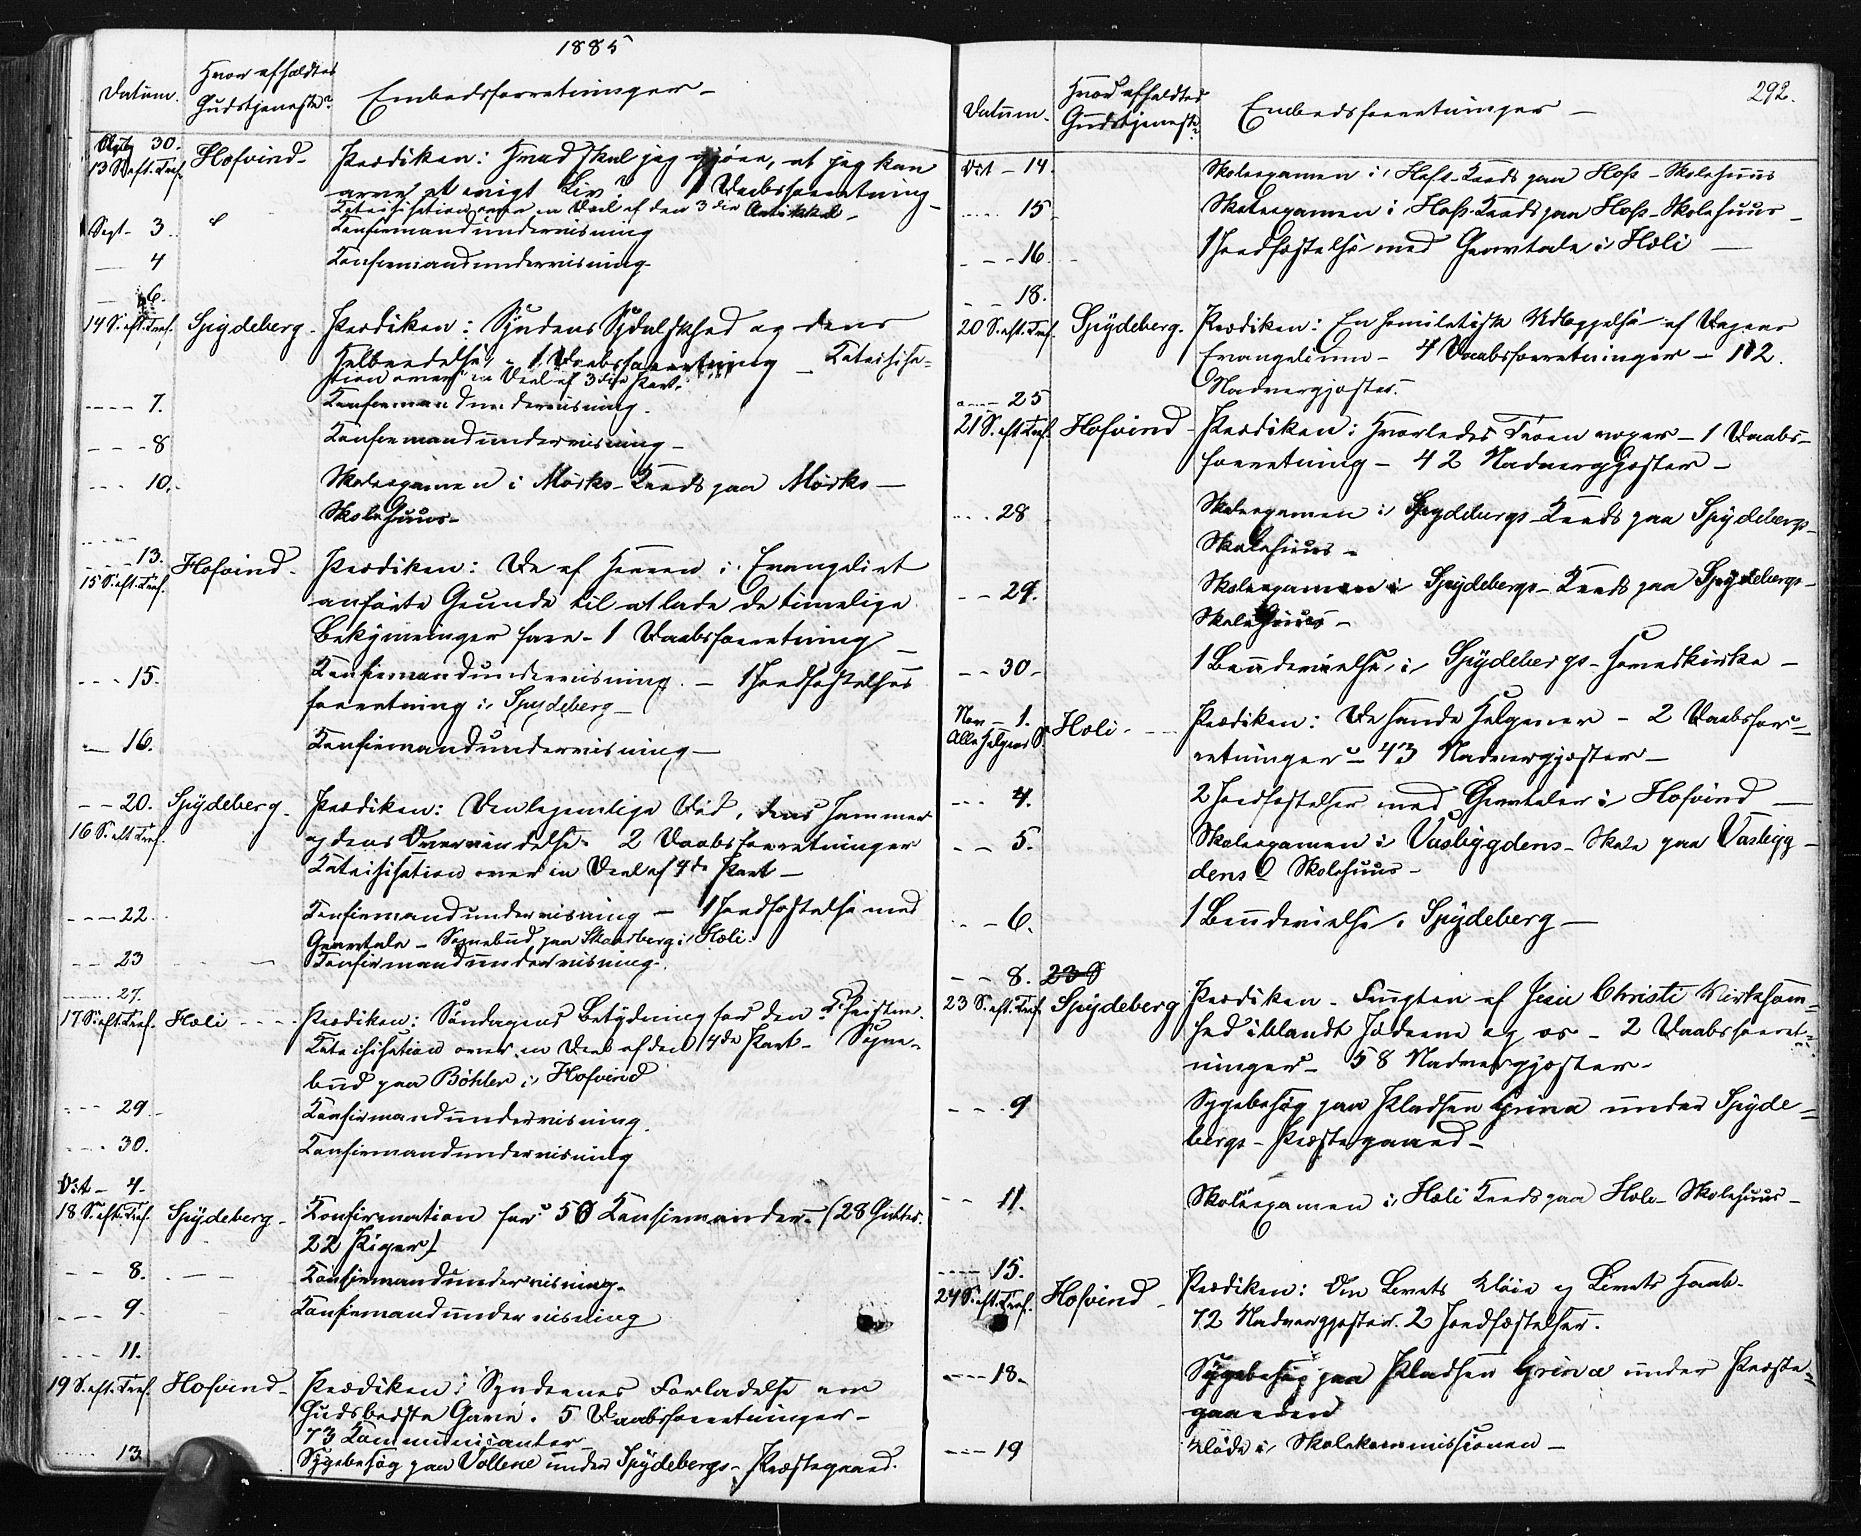 1885
Datum.
Hvor afholdtes
Gudstjeneste?
Embedsforretninger –
30.
13 S. eft. Tref.
Hofvind –
Prædiken: Hvad skal jeg gjøre, at jeg kan
arve et evigt Liv? 1 Daabsforretning –
Katechisation over en Deel af den 3die Artikkel –
Sept – 3.
Konfirmandundervisning
– 4
Konfirmandundervisning –
– 6.
14 S. eft. Tref.
Spydeberg –
Prædiken: Syndens Spedalskhed og dens
Helbredelse, – 1 Daabsforretning – Katechisa=
tion over en Deel af 3die Part.
---- 7.
Konfirmandundervisning.
---- 8
Konfirmandundervisning –
--- 10.
Skoleexamen i Mørks – Kreds paa Mørks –
Skolehuus –
--- 13.
15 S. eft. Tref.
Hofvind –
Prædiken: De af Herren i Evangeliet
anførte Grunde til at lade de timelige
Bekymringer fare – 1 Daabsforretning –
--- 15.
Konfirmandundervisning. – 1 Jordfæstelses
forretning i Spydeberg –
– 16.
Konfirmandundervisning –
-- 20.
16 S. eft. Tref.
Spydeberg –
Prædiken: Den legemlige Død, dens Jammer
og dens Overvindelse – 2 Daabsforretninger
Katechisation over en Deel af 4de Part –
--- 22.
Konfirmandundervisning – 1 Jordfæstelse med
Gravtale – Sognebud paa Skaarberg i Hæli
-- 23
Konfirmandundervisning.
---- 27.
17 S. eft. Tref.
Hæli ---
Prædiken: Søndagens Betydning for den Christne.
Katechisation over en Deel af den 4de Part – Sogne=
bud paa Bøhler i Hofvind
--- 29.
Konfirmandundervisning.
--- 30.
Konfirmandundervisning
Oct – 4.
18 S. eft. Tref.
Spydeberg –
Konfirmation for 50 Konfirmander – (28 Gutter.
22 Piger)
-- 8.
Konfirmandundervisning –
--- 9.
Konfirmandundervisning
--- 11.
19 S. eft. Tref.
Hofvind –
Prædiken: Syndernes Forladelse er
Guds bedste Gave. 5 Daabsforretninger –
73 Kommunicanter –
---- 13
Sygebesøg paa Vollene under Spydebergs – Præstegaard.
292.
Datum.
Hvor afholdtes
Gudstjeneste?
Embedsforretninger –
Oct – 14.
Skoleexamen i Hofs – Kreds paa Hofs – Skolehuus
---- 15
Skoleexamen i Hofs – Kreds paa Hofs – Skolehuus –
--- 16.
1 Jordfæstelse med Gravtale i Hæli –
-- 18.
20 S. eft. Tref.
Spydeberg.
Prædiken: En homiletisk Udlæggelse af Dagens
Evangelium – 4 Daabsforretninger – 112
Nadvergjæster.
---- 25
21 S. eft. Tref.
Hofvind –
Prædiken: Hvorledes Troen voxer – 1 Daabs=
forretning – 42 Nadvergjæster –
---- 28
Skoleexamen i Spydebergs – Kreds paa Spydebergs –
Skolehuus –
-- 29.
Skoleexamen i Spydebergs – Kreds paa Spydebergs –
Skolehuus –
-- 30 –
1 Brudevielse i Spydebergs – Hovedkirke –
Nov – 1.
Alle Helgens S.
Hæli. –
Prædiken: De sande Helgener – 2 Daabsfor=
retninger – 43 Nadvergjæster –
--- 4.
2 Jordfæstelser med Gravtaler i Hofvind –
-- 5.
Skoleexamen i Vasbygdens – Skole paa Vasbyg –
dens Skolehuus –
-- 6.
1 Brudevielse i Spydeberg –
-- 8.
23 S
23 S. eft. Tref.
Spydeberg
Prædiken – Frugten af Jesu Christi Virksom=
hed iblandt Jøderne og os – 2 Daabsforret=
ninger – 58 Nadvergjæster –
--- 9
Sygebesøg paa Pladsen Grina under Spyde=
bergs – Præstegaard –
-- 11.
Skoleexamen i Hæli Kreds paa Hæli – Skolehuus –
---- 15.
24 S. eft. Tref.
Hofvind –
Prædiken: Om Livets og Livets Haab.
72 Nadvergjæster. 2 Jordfæstelser.
---- 18 –
Sygebesøg paa Pladsen Grina under Præste=
gaarden
---- 19
Møde i Skolekommissionen –